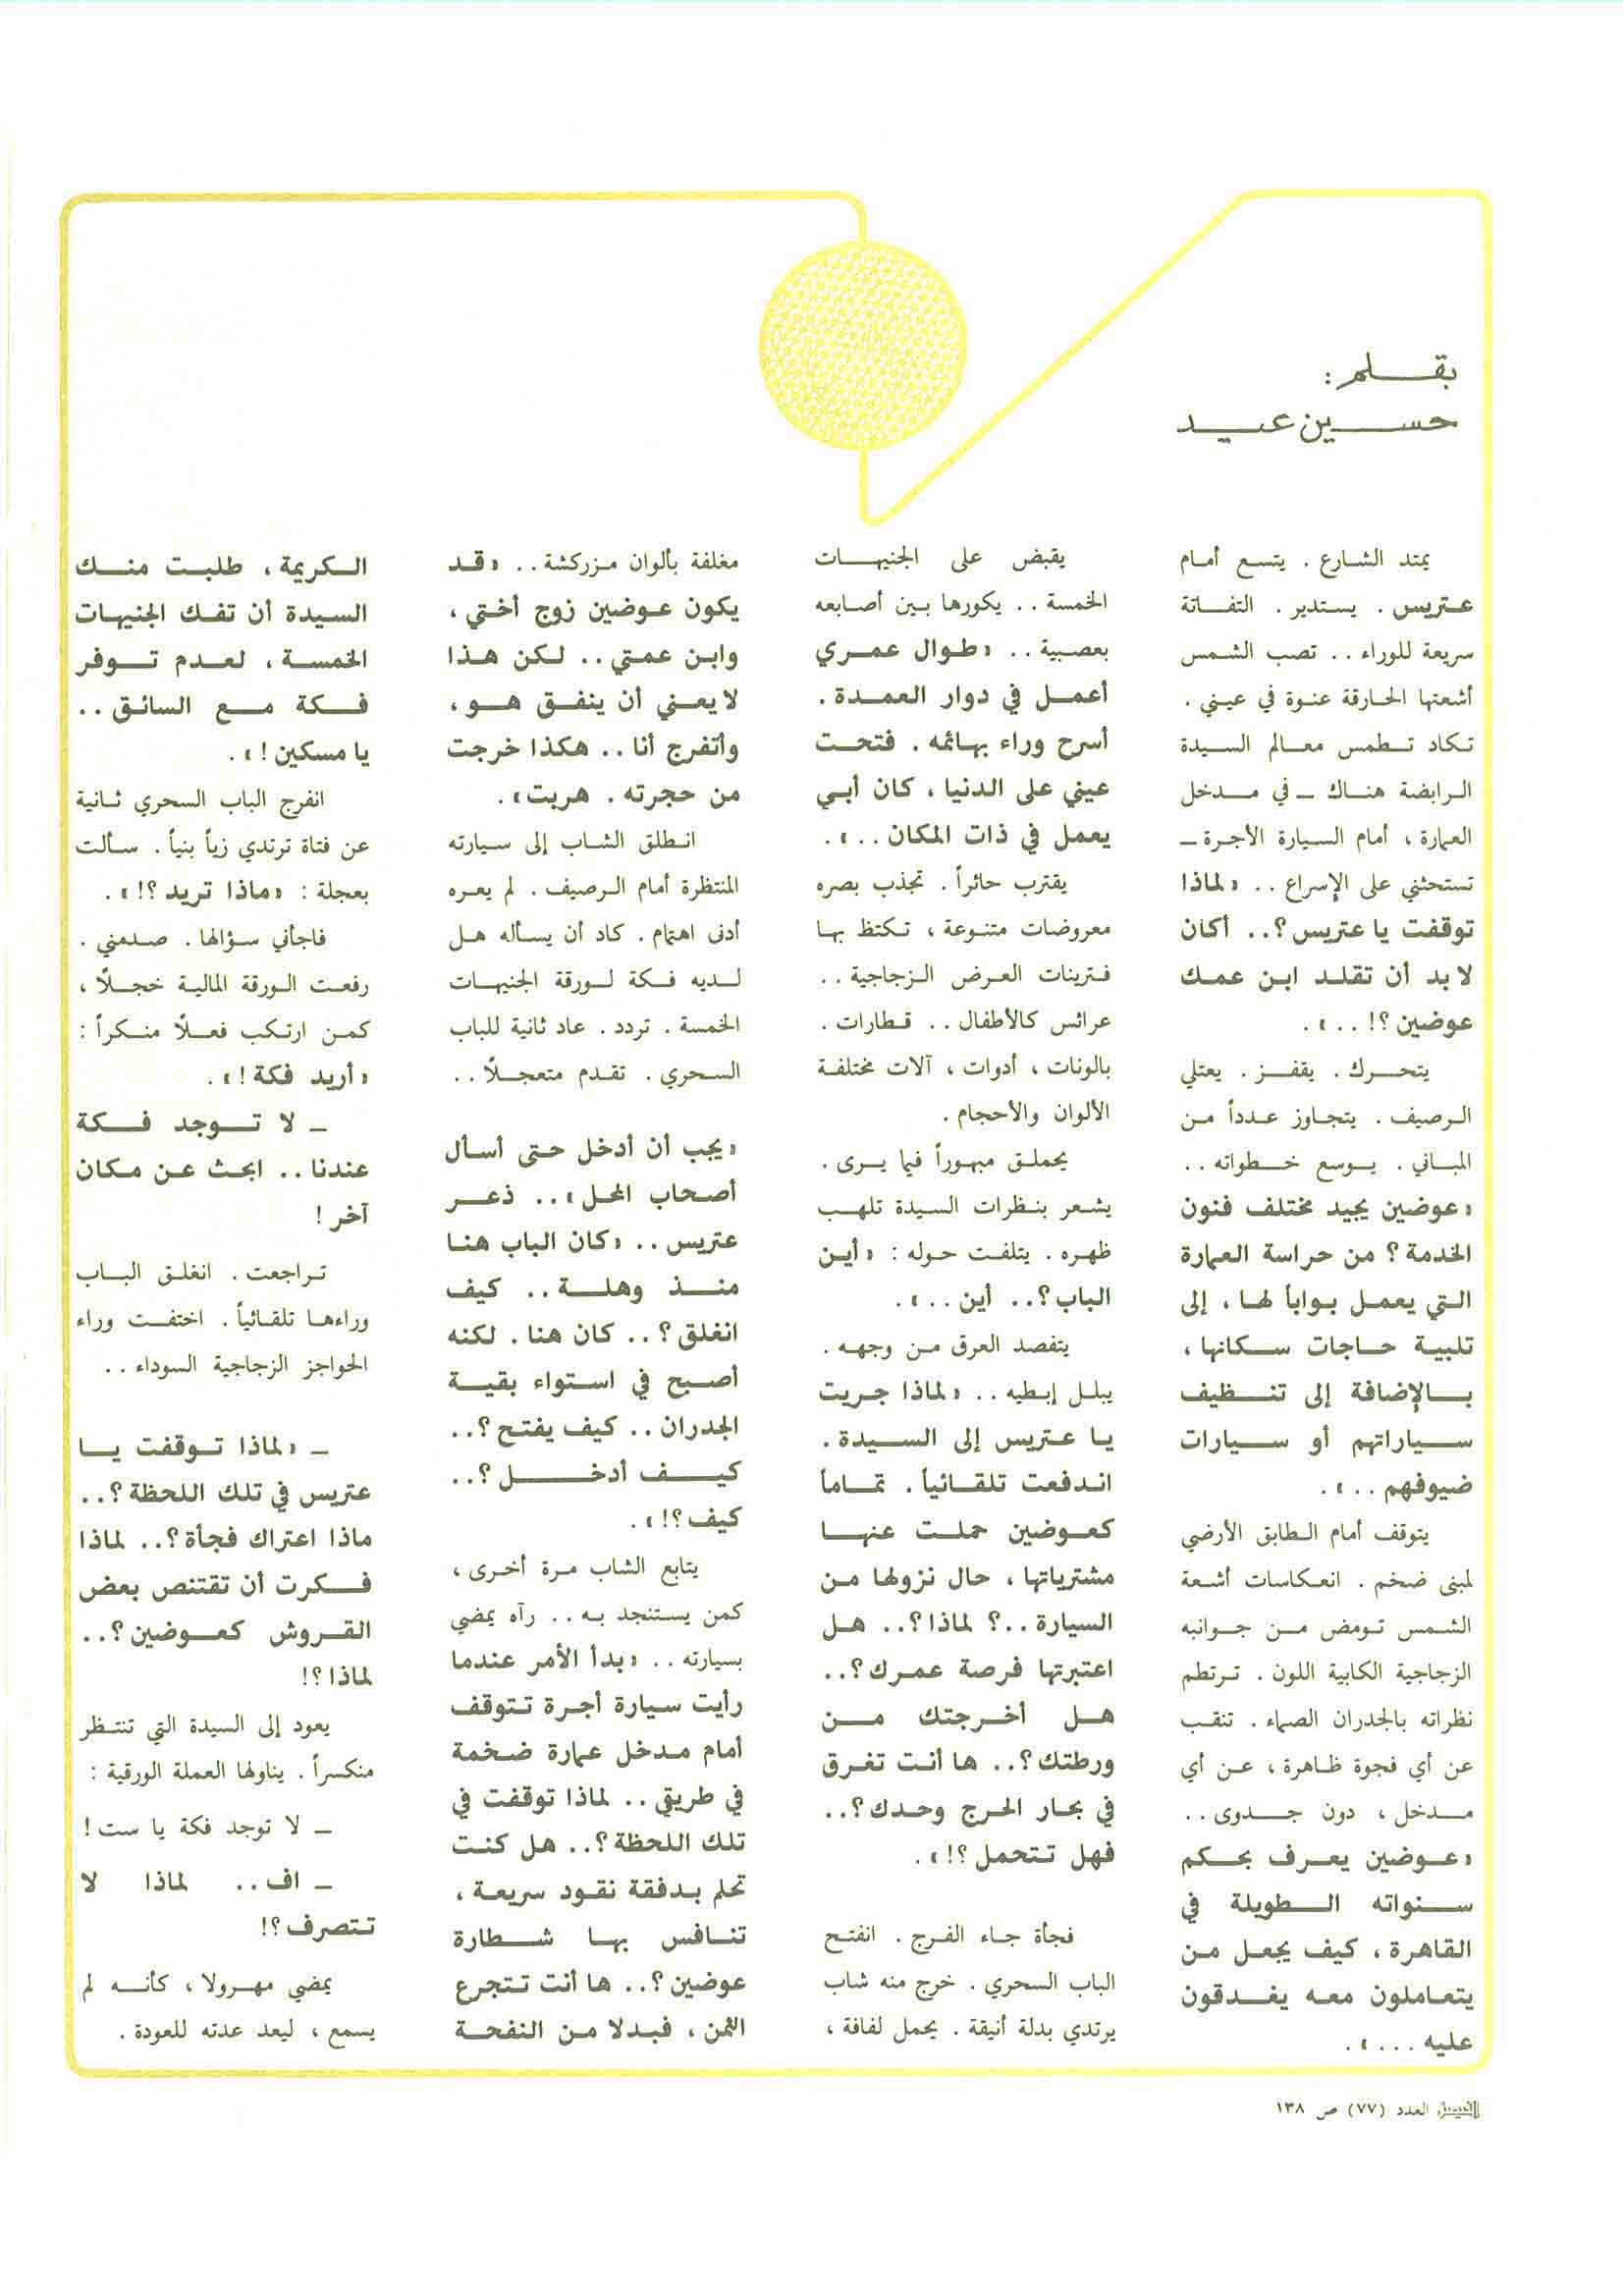 بقلم :
حسين عيد
يمتد الشارع . يتسع أمام
عتريس . يستدير . التفاتة
سريعة للوراء .. تصب الشمس
أشعتها الحارقة عنوة في عيني .
تكاد تطمس معالم السيدة
الرابضة هناك ــ في مدخل
العمارة ، أمام السيارة الأجرة ــ
تستحثني على الإسراع .. «لماذا
توقفت يا عتريس؟.. أكان
لا بد أن تقلد ابن عمك
عوضين؟! ..» .
يتحرك . يقفز . يعتلي
الرصيف . يتجاوز عدداً من
المباني . يوسع خطواته ..
«عوضين يجيد مختلف فنون
الخدمة؟ من حراسة العمارة
التي يعمل بواباً لها ، إلى
تلبية حاجات سكانها ،
بالإضافة إلى تنظيف
سياراتهم أو سيارات
ضيوفهم ..» .
يتوقف أمام الطابق الأرضي
لمبنى ضخم . انعكاسات أشعة
الشمس تومض من جوانبه
الزجاجية الكابية اللون . ترتطم
نظراته بالجدران الصماء . تنقب
عن أي فجوة ظاهرة ، عن أي
مدخل ، دون جدوى ..
«عوضين يعرف بحكم
سنواته الطويلة في
القاهرة ، كيف يجعل من
يتعاملون معه يغدقون
عليه ...» .
يقبض على الجنيهات
الخمسة .. يكورها بين أصابعه
بعصبية .. «طوال عمري
أعمل في دوار العمدة .
أسرح وراء بهائمه . فتحت
عيني على الدنيا ، كان أبي
يعمل في ذات المكان ..» .
يقترب حائراً . تجذب بصره
معروضات متنوعة ، تكتظ بها
فترينات العرض الزجاجية ..
عرائس كالأطفال .. قطارات .
بالونات ، أدوات ، آلات مختلفة
الألوان والأحجام .
يحملق مبهوراً فيما يرى .
يشعر بنظرات السيدة تلهب
ظهره . يتلفت حوله : «أين
الباب؟.. أين ..» .
يتفصد العرق من وجهه .
يبلل إبطيه .. «لماذا جريت
يا عتريس إلى السيدة .
اندفعت تلقائياً . تماماً
كعوضين حملت عنها
مشترياتها ، حال نزولها من
السيارة ..؟ لماذا؟.. هل
اعتبرتها فرصة عمرك؟..
هل أخرجتك من
ورطتك؟.. ها أنت تغرق
في بحار الحرج وحدك؟..
فهل تتحمل؟!» .
فجأة جاء الفرج . انفتح
الباب السحري . خرج منه شاب
يرتدي بدلة أنيقة . يحمل لفافة ،
مغلفة بألوان مزركشة .. «قد
يكون عوضين زوج أختي ،
وابن عمتي .. لكن هذا
لا يعني أن ينفق هو ،
وأتفرج أنا .. هكذا خرجت
من حجرته . هربت» .
انطلق الشاب إلى سيارته
المنتظرة أمام الرصيف . لم يعره
أدنى اهتمام . كاد أن يسأله هل
لديه فكة لورقة الجنيهات
الخمسة . تردد . عاد ثانية للباب
السحري . تقدم متعجلاً ..
«يجب أن أدخل حتى أسأل
أصحاب المحل» .. ذعر
عتريس .. «كان الباب هنا
منذ وهلة .. كيف
انغلق؟.. كان هنا . لكنه
أصبح في استواء بقية
الجدران .. كيف يفتح؟..
كيف أدخل؟..
كيف؟!» .
يتابع الشاب مرة أخرى ،
كمن يستنجد به .. رآه يمضي
بسيارته .. «بدأ الأمر عندما
رأيت سيارة أجرة تتوقف
أمام مدخل عمارة ضخمة
في طريقي .. لماذا توقفت في
تلك اللحظة؟.. هل كنت
تحلم بدفقة نقود سريعة ،
تنافس بها شطارة
عوضين؟.. ها أنت تتجرع
الثمن ، فبدلا من النفحة
الكريمة ، طلبت منك
السيدة أن تفك الجنيهات
الخمسة ، لعدم توفر
فكة مع السائق ..
يا مسكين!» .
انفرج الباب السحري ثانية
عن فتاة ترتدي زياً بنياً . سألت
بعجلة : «ماذا تريد؟!» .
فاجأني سؤالها . صدمني .
رفعت الورقة المالية خجلاً ،
كمن ارتكب فعلاً منكراً :
«أريد فكة!» .
ــ لا توجد فكة
عندنا .. ابحث عن مكان
آخر!
تراجعت . انغلق الباب
وراءها تلقائياً . اختفت وراء
الحواجز الزجاجية السوداء ..
ــ «لماذا توقفت يا
عتريس في تلك اللحظة؟..
ماذا اعتراك فجأة؟.. لماذا
فكرت أن تقتنص بعض
القروش كعوضين؟..
لماذا؟!
يعود إلى السيدة التي تنتظر
منكسراً . يناولها العملة الورقية :
ــ لا توجد فكة يا ست!
ــ اف .. لماذا لا
تتصرف؟!
يمضي مهرولا ، كأنه لم
يسمع ، ليعد عدته للعودة .
الفيصل العدد (٧٧) ص ١٣٨